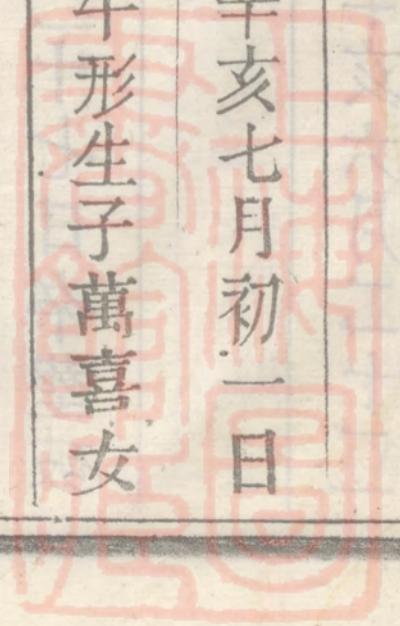 辛亥七月初一日
牛形生子萬喜女